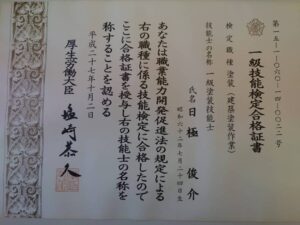 第一五-1-〇六〇-一四-〇〇二二号
一級技能検定合格証書
検定職種 塗装(建築塗装作業)
技能士の名称 一級塗装技能士
氏名 日極俊介
昭和六十二年七月二十四日生
あなたは職業能力開発促進法の規定による
右の職種に係る技能検定に合格したので
ここに合格証書を授与し右の技能士の名称を
称することを認める
平成二十七年十月二日
厚生労働大臣 塩崎恭久